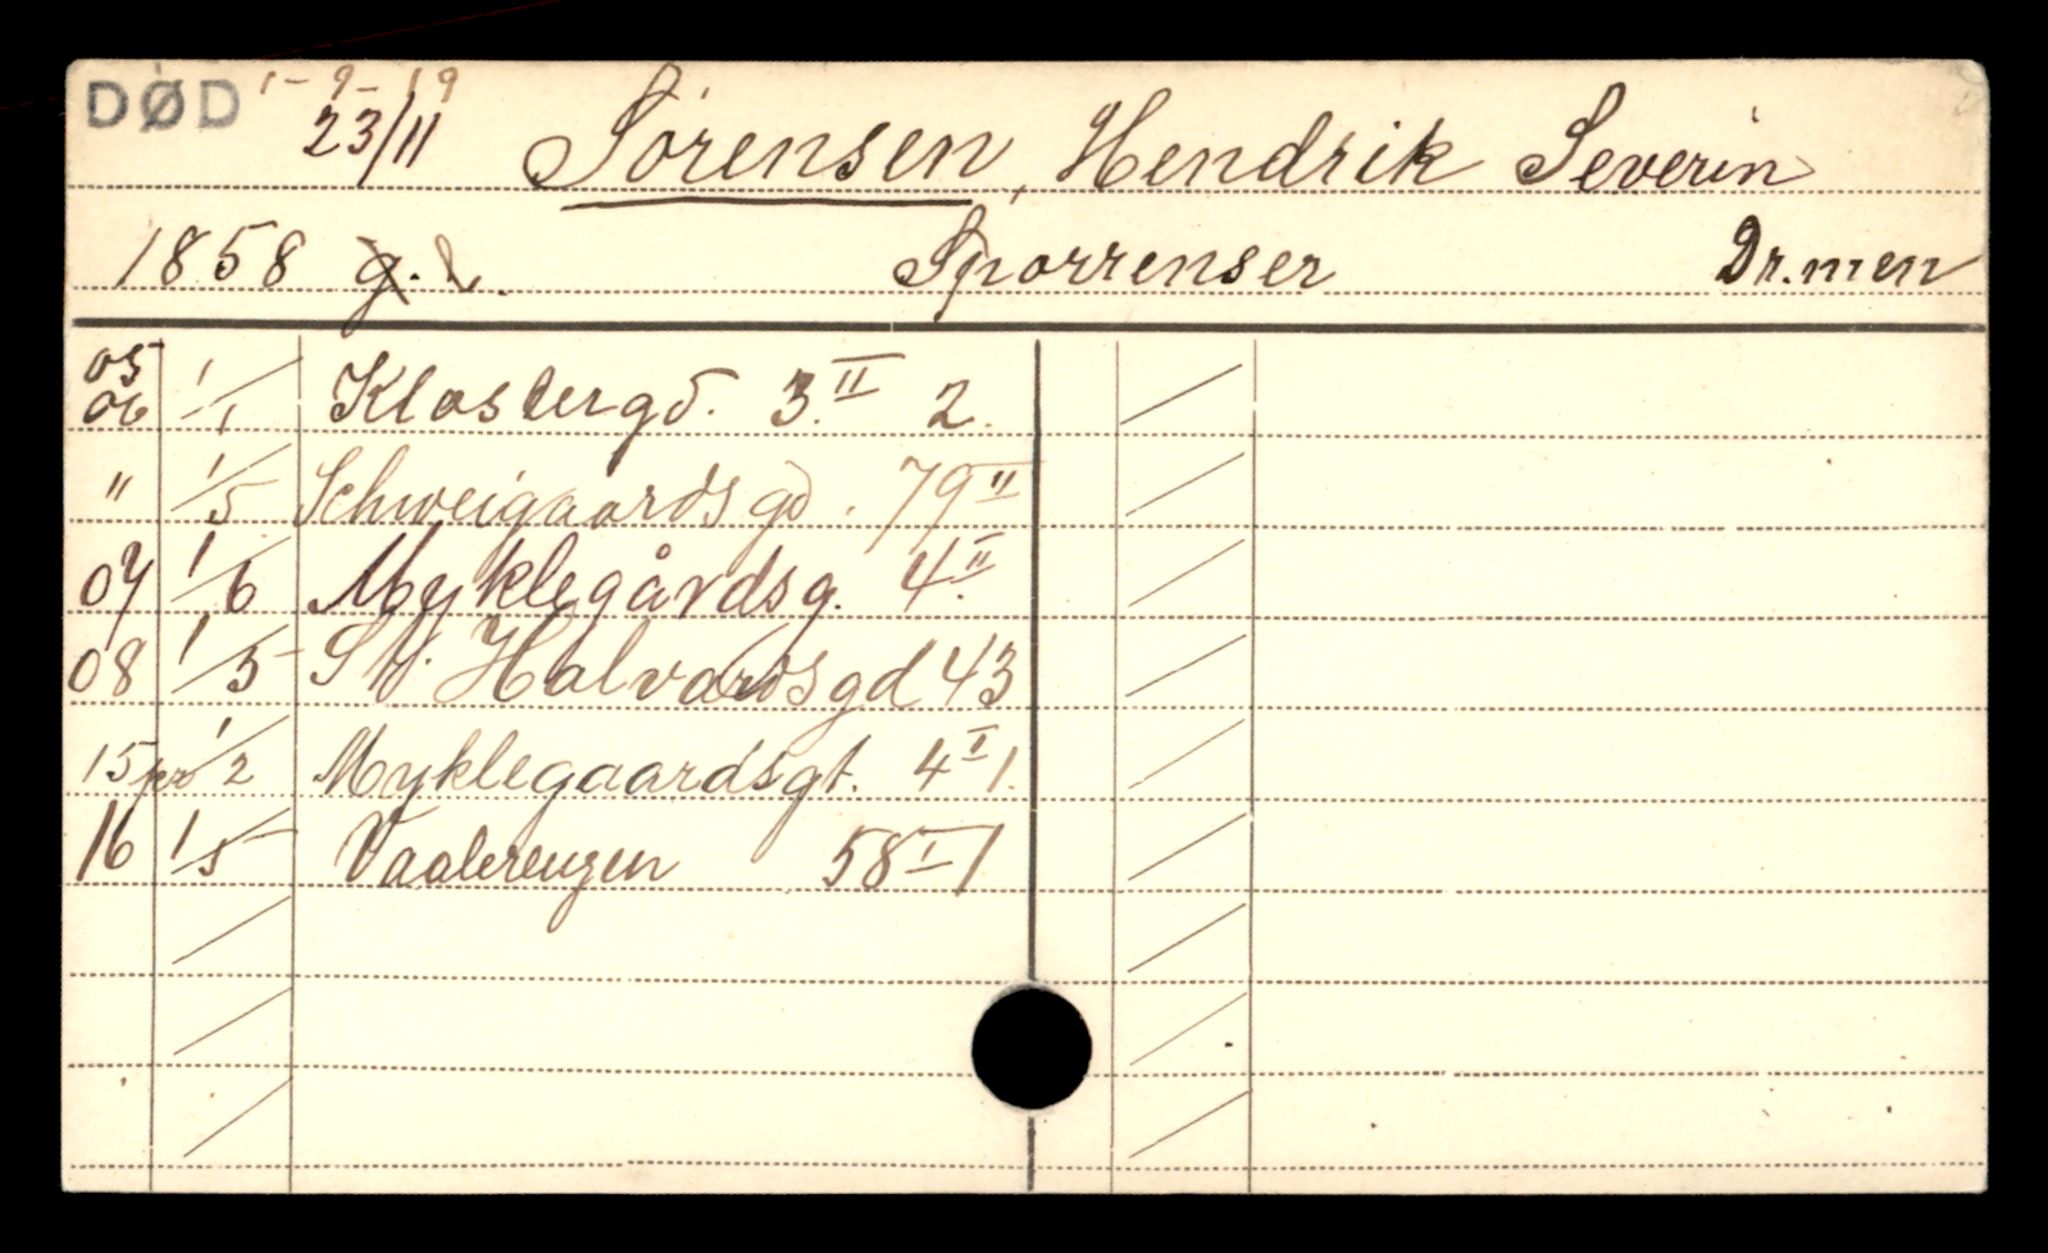 DØD 1-9-19
23/11 Sörensen, Hendrik Severin
1858 g. Sporrenser Dr.men
05 06 1/1 Klostergd. 3.II 2.
" 1/5 Schweigaardsgd. 79 II
07 1/6 Myklegårdsg. 4.II
08 1/5 St. Halvardsgd 43
15 pr 1/2 Myklegaardsgt. 4 I 1.
16 1/5 Vaalerengen 58 I 1